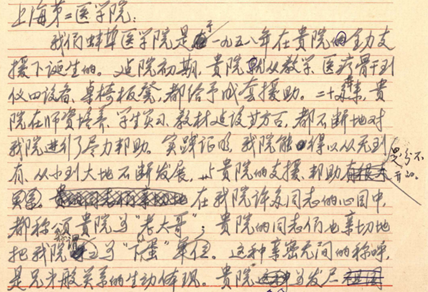 上海第二医学院:
我们蚌埠医学院是于一九五八年在贵院的全力支
援下诞生的。建院初期,贵院就从教学、医疗骨干到
仪四设备、桌椅板凳,都给予成套援助。二十多年来,贵
院在师资培养、学生实习、教材建设等方面,都不断地对
我院进行了尽力帮助。实践证明,我院能够得以从无到
有、从小到大地不断发展,与贵院的支援、帮助
是分不
开的。
在我院许多同志的心目中,
都称颂贵院为"老大哥";贵院的同志们也亲切地
把我院 为"下蛋"单位。这种亲密无间的称呼,
是兄弟般关系的生动体现。贵院 为发展